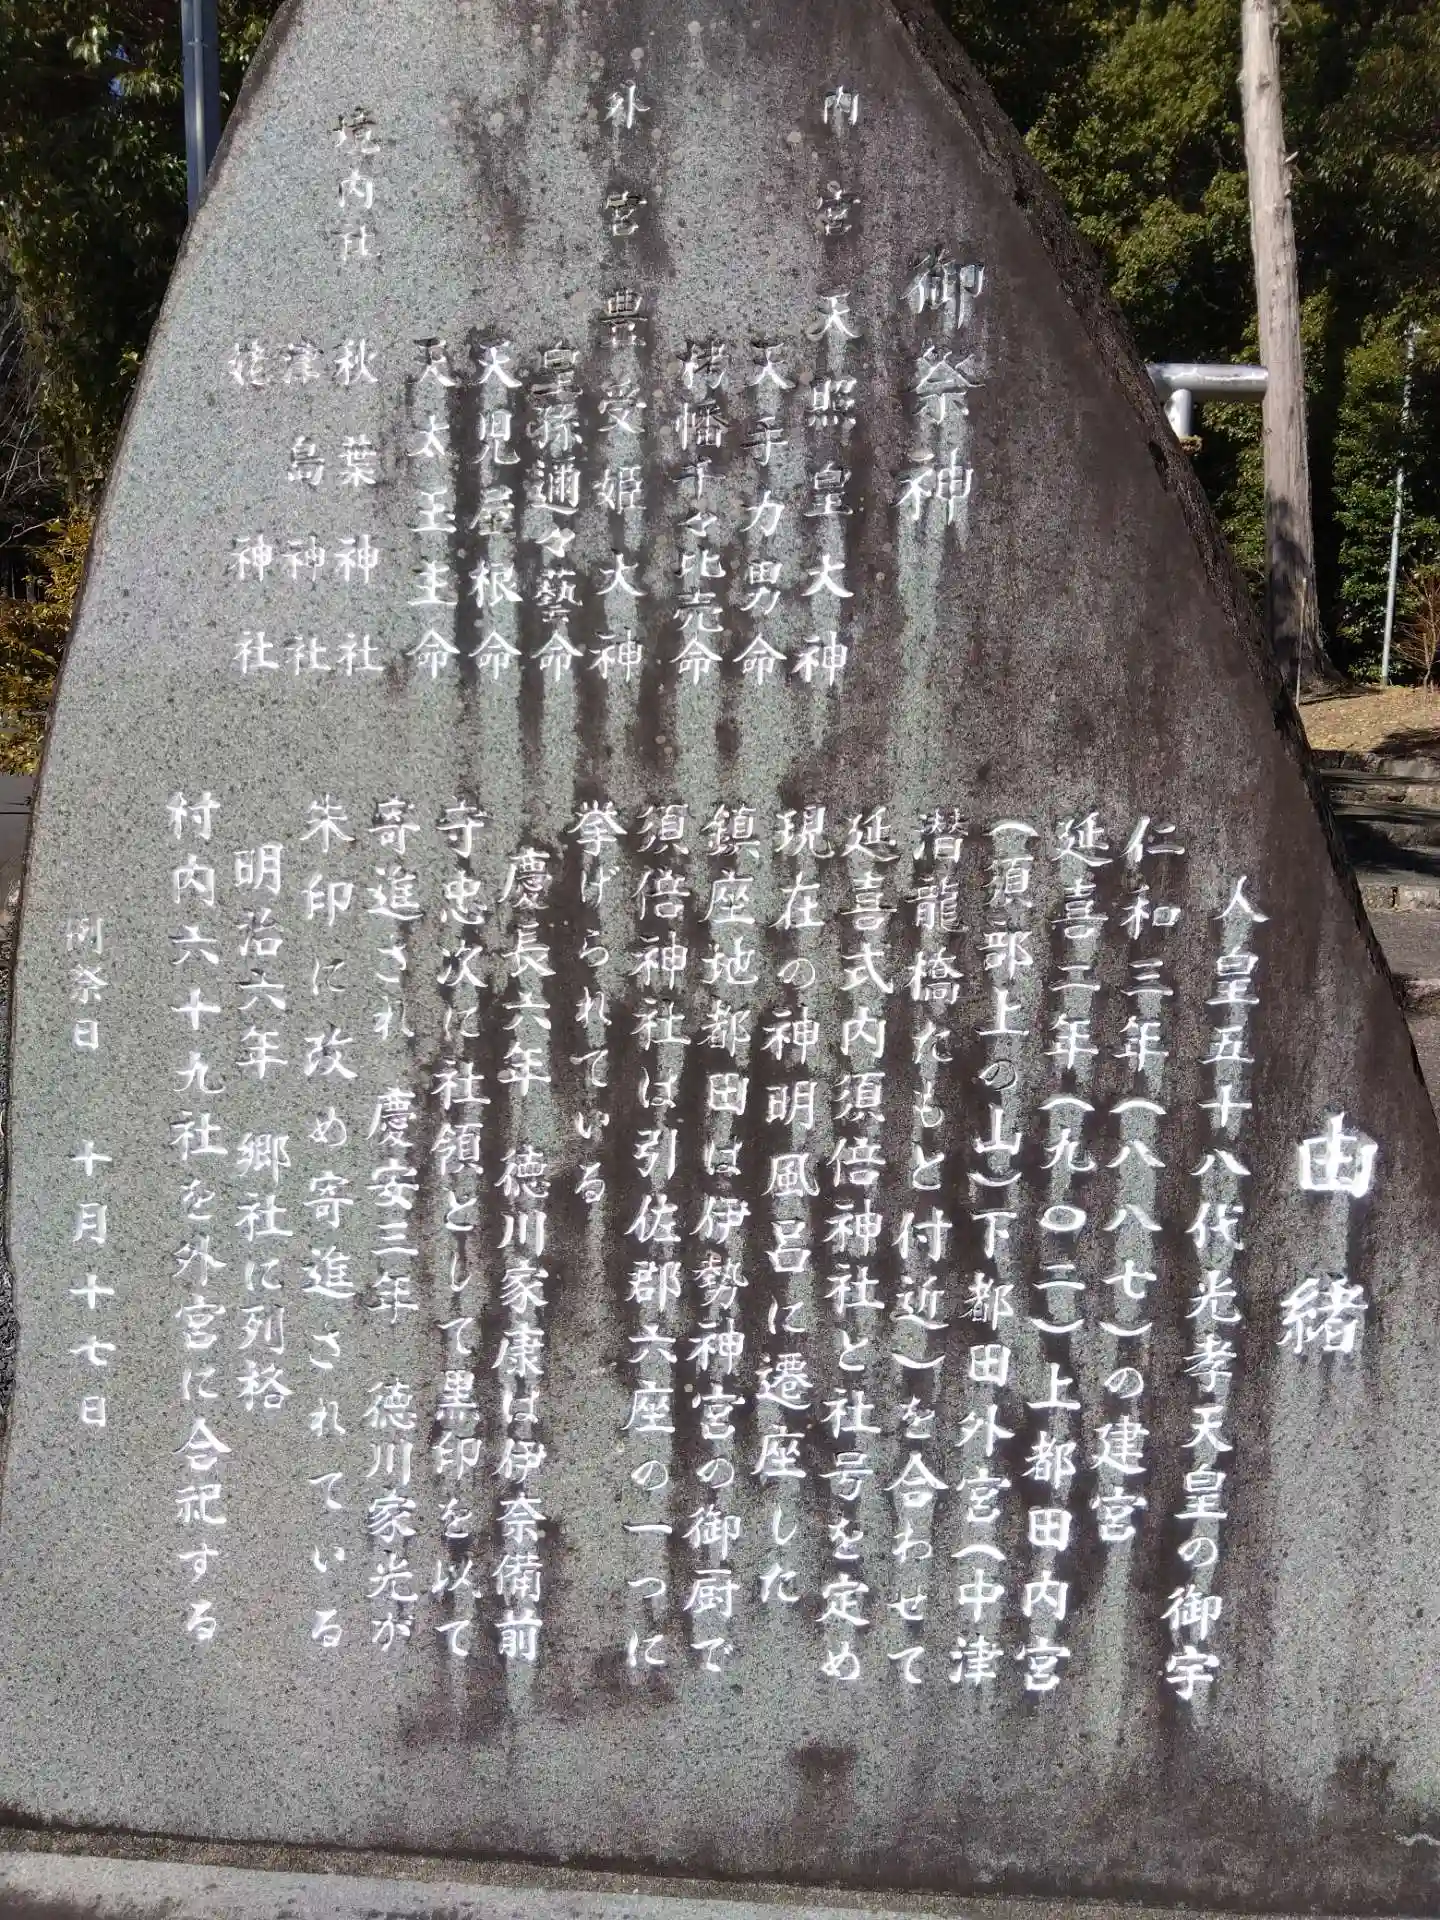 御祭神
内宮 天照皇大神
天手力男命
栲幡千々比売命
外宮 豊受姫大神
皇孫邇々藝命
天児屋根命
天太玉主命
境内社 秋葉神社
津島神社
神社
由緒
人皇五十八代光孝天皇の御宇
仁和三年(八八七)の建宮
延喜二年(九〇二)上都田内宮
(須部上の山)下都田外宮(中津
潜龍橋たもと付近)を合わせて
延喜式内須倍神社と社号を定め
現在の神明風呂に遷座した
鎮座地都田は伊勢神宮の御厨で
須倍神社は引佐郡六座の一つに
挙げられている
慶長六年 徳川家康は伊奈備前
守忠次に社領として黒印を以て
寄進され 慶安三年 徳川家光が
朱印に改め寄進されている
明治六年 郷社に列格
村内六十九社を外宮に合祀する
例祭日 十月十七日